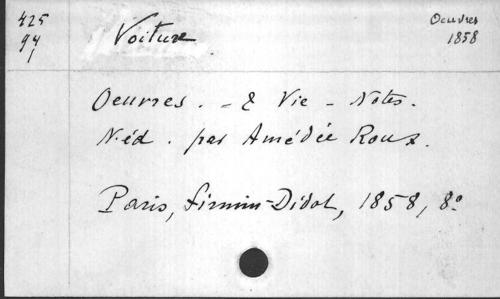 425
94
1
Voiture
Oeuvres
1858
Oeuvres. - & Vie - Notes.
N. éd. par Amédée Roux.
Paris, Firmin-Didot, 1858, 8º